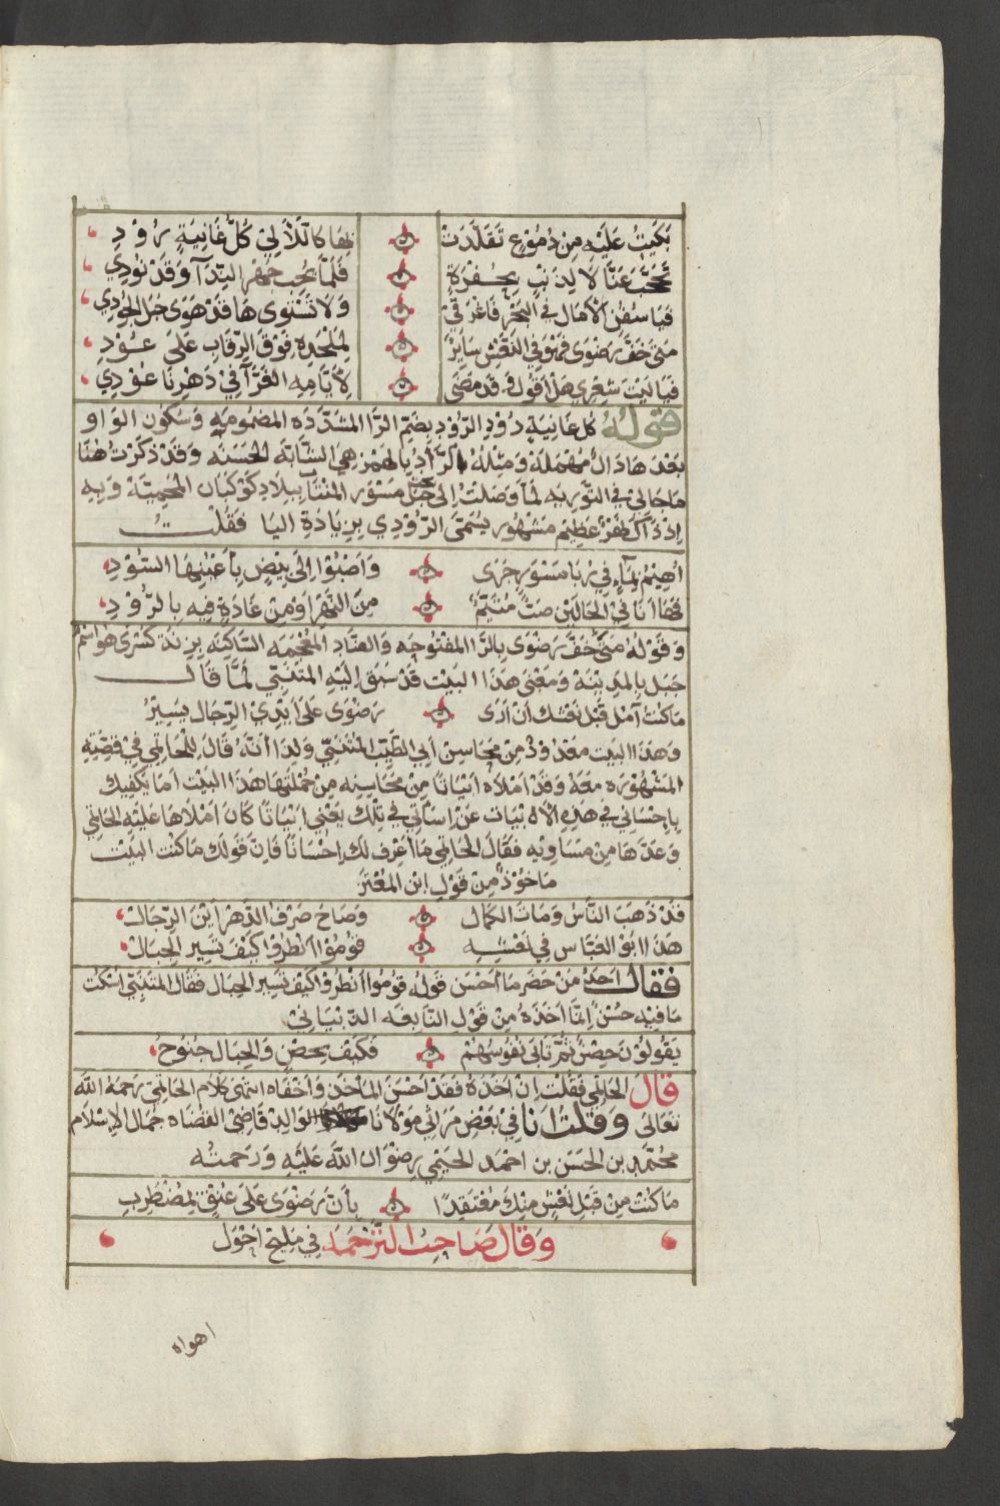 بَكَيْتُ عَلَيْهِ مِن دُمُوْعٍ تَقَلَّدَتْ بِهَا كَاللَّآلِئِ كُلُّ غَانِيَةٍ رُوْدِ
تَحَجَّبَ عَنَّا لَا لِذَنْبٍ بِحُفْرَةٍ فَلَمَّا يُجِب جَهْرَ النِّدَآ وَقَدْ نُوْدِي
فَيَا سُفُنَ الْآمَال في الْبَحْرِ فَاغْرَقِيْ وَلَا تَسْتَوِي هَا قَدْ هَوَى جَبَل الجُوْدِي
مَتَى خَفَّ رَضْوَى فَهْوَ فِي النَّعْشِ سَايِرٌ لِمَلْحَدِهِ فَوْقَ الرِّقَابِ عَلَى عُوْدِ
فَيَا لَيْتَ شِعْرِي هَلْ أَقُولُ وَقَد مَضَى لِأَيَّامِهِ الْغَرَّآ فِيْ دَهْرِنَا عُوْدِي
قَوْلُهُ كُل غَانِيَةٍ رُوْدِ الرُّوْد بِضَمِّ الرَّا المشَدَّدَه المضمُومَهِ وَسُكُون الوَاو
بَعْدَهَا دَالٌ مُهْمَلَةٌ وَمِثْلُهُ الرَّأْدُ بِالهَمْزِ هِيَ الشَّابَّة الحَسَنَه وَقَدْ ذَكَرْتُ هُنَا
مَا جَالِي في التَّوْرِيَه لَمَّا وَصَلْتُ إِلَى جَبَل مَسْوَر المُنْتَابِ بِبِلَادِ كَوْكَبَان المَحْمِيَّة وَبِهِ
إِذْ ذَاكَ نَهْرٌ عَظِيْم مَشْهُور يُسَمَّى الرُّوْدِي بِزِيَادَةِ اليَا فَقُلْتُ
أَهِيْمُ بِمَآءٍ فِي رُبَا مَسْوَرٍ جَرَى وَأَصْبُوْا إِلَى بِيْضٍ بِأَعْيُنِهَا السُّوْدِ
فَهَا أَنَا فِي الحَالَيْنِ صَبٌّ مُتَيَّمٌ مِنَ النَّهْرِ أَوْ مِنْ غَادَةٍ فِيهِ بِالرُّوْدِ
وَقَوْلُهُ مَتَى خَفَّ رَضْوَى بِالرَّا المَفْتُوحَه وَالضَّاد المُعْجَمَه السَّاكِنَه بِزِنَة كَسْرَى هُوَ اسْمُ
جَبَل بِالمَدِيْنَهْ وَمَعْنَى هَذَا البَيْت قَدْ سَبَقَ إِلَيْهِ المتَنَبِّي لَمَّا قَالَ
مَا كُنْتُ آمُلُ قَبْلَ نَعْشِكَ أَنْ أَرَى رَضْوَى عَلَى أَيْدِي الرِّجَال يَسِيْرُ
وَهَذَا البَيْت مَعْدُوْدٌ مِنْ مَحَاسِنِ أَبِي الطَّيِّب المُتَنَبِّي وَلِذَا أَنَّهُ قَالَ لِلْحَاتِمِي فِيْ قِصَّتِهِ
المَشْهُوْرَه مَعَهُ وَقَدْ أَمْلَاه أَبْيَاتًا مِنْ مَحَاسِنِهِ مِنْ جُمْلَتِهَا هَذَا البَيْت أَمَا يَكْفِيكَ
بِإِحْسَانِي في هَذِهِ الأَبْيَات عَنْ إِسَآتي في تِلْكَ يَعْنِي أَبْيَاتًا كَانَ أَمْلَاهَا عَلَيْهِ الحَاتِمِي
وَعَدَّهَا مِنْ مَسَاوِيْهِ فَقَالَ الحَاتِمِي مَا أَعْرِف لَكَ إِحْسَانًا فَإِنَّ قَوْلَكَ مَا كُنْت البَيْت
مَاخُوْذٌ مِنْ قَوْلِ ابْن المُعْتَز
قَدْ ذَهَبَ النَّاسُ وَمَاتَ الكَمَال وَصَاحَ صَرْفُ الدَّهْرِ أَيْنَ الرِّجَال
هَذَا أَبُوْ العَبَّاس فِي نَعْشِهِ قُوْمُوْا انْظُرُوْا كَيْفَ تَسِير الجِبَال
فَقَالَ أحَدُ مَنْ حَضَرَ مَا أَحْسَن قَوْلُه قُومُوْا انْظُرُوْا كَيْفَ تَسِير الجِبَال فَقَالَ المتَنَبِّي اسْكُت
مَا فِيْهِ حُسْن إِنَّمَا أَخَذَهُ مِنْ قَوْلِ النَّابِغَه الذُّبْيَانِيْ
يَقُوْلُوْنَ حِصْنٌ ثُمَّ تَأْبَى نُفُوْسُهُمْ فَكَيْفَ بِحِصْنٍ وَالجِبَال جُنُوْحُ
قَالَ الحَاتِمِي فَقُلْت إِنْ أَخَذَهُ فَقَدْ أَحْسَنَ المَأْخَذَ وَأَخْفَاه انتهَى كَلَام الحَاتِمِيّ رَحِمَهُ اللَّه
تَعَالَى وَقُلْتُ أَنَا فِيْ بَعْضِ مَرَاثِي مَوْلَانَا الوَالِد قَاضِيْ القُضَاه جَمَال الإِسْلَام
مُحَمَّد بن الحَسَن بن أَحْمَد الحَيْمِي رِضْوَان اللَّه عَلَيْهِ وَرَحْمَتُه
مَا كُنْتُ مِنْ قَبْلِ نَعْشٍ مِنْكَ مُعْتَقِدًا بِأَنَّ رَضْوَى عَلَى عُنْقٍ لِمُضْطَرِبِ
وَقَالَ صَاحِبُ التَّرْجَمَه فِيْ مَلِيْحٍ أَحْوَل
اهواه